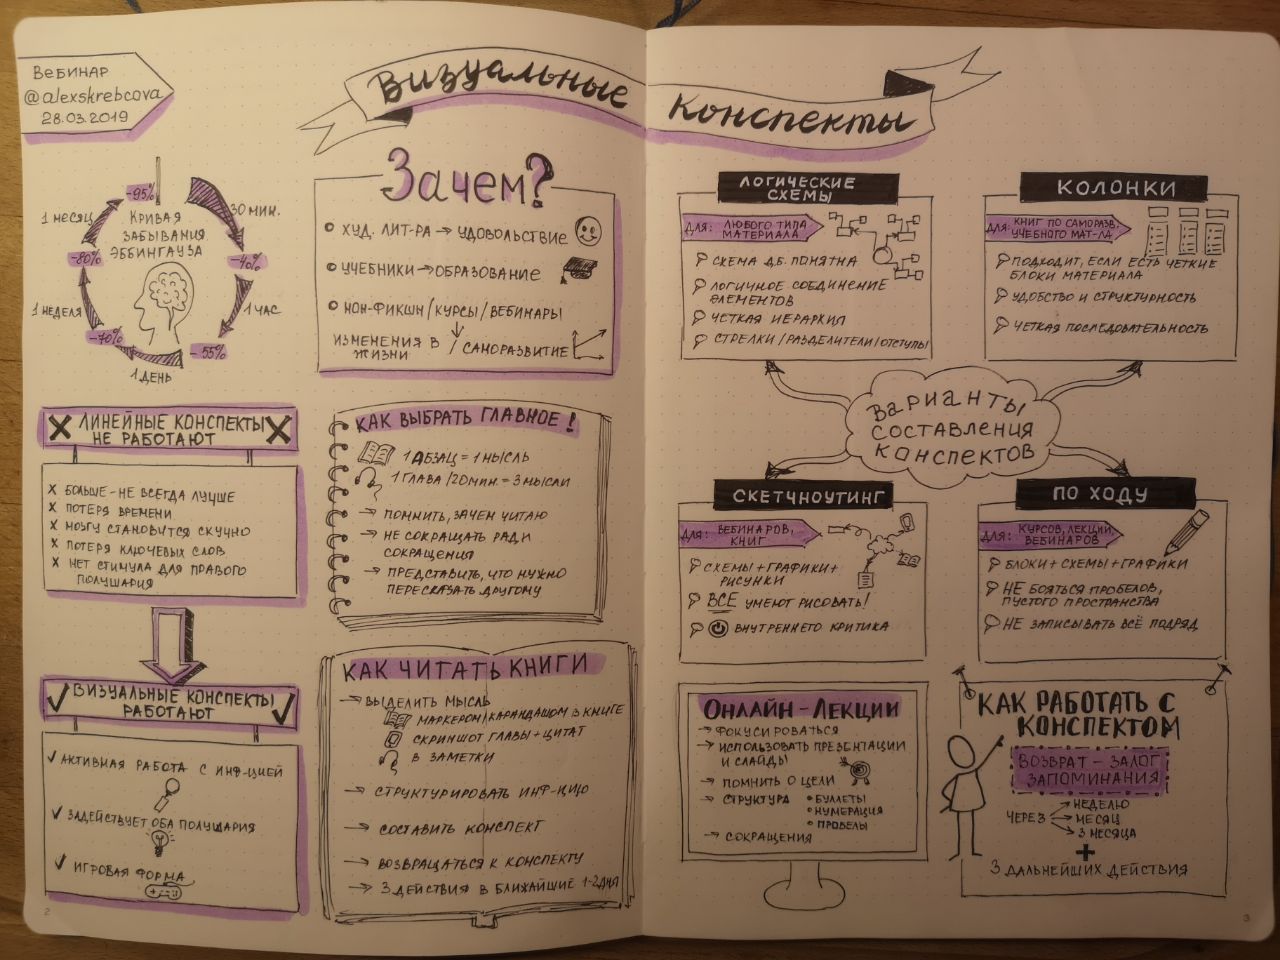 ВЕБИНАР
@alexskrebcova
28.03.2019
Визуальные
Конспекты
-95%
30 МИН.
-40%
1 ЧАС
-55%
1 ДЕНЬ
-70%
1 НЕДЕЛЯ
-80%
1 МЕСЯЦ
КРИВАЯ
ЗАБЫВАНИЯ
ЭББИНГАУЗА
Зачем?
ХУД. ЛИТ-РА → УДОВОЛЬСТВИЕ
УЧЕБНИКИ → ОБРАЗОВАНИЕ
НОН-ФИКШН / КУРСЫ / ВЕБИНАРЫ
ИЗМЕНЕНИЯ В / САМОРАЗВИТИЕ
ЖИЗНИ
X ЛИНЕЙНЫЕ КОНСПЕКТЫ X
НЕ РАБОТАЮТ
X БОЛЬШЕ - НЕ ВСЕГДА ЛУЧШЕ
X ПОТЕРЯ ВРЕМЕНИ
X МОЗГУ СТАНОВИТСЯ СКУЧНО
X ПОТЕРЯ КЛЮЧЕВЫХ СЛОВ
X НЕТ СТИМУЛА ДЛЯ ПРАВОГО
ПОЛУШАРИЯ
✓ ВИЗУАЛЬНЫЕ КОНСПЕКТЫ ✓
РАБОТАЮТ
✓ АКТИВНАЯ РАБОТА С ИНФ-ЦИЕЙ
✓ ЗАДЕЙСТВУЕТ ОБА ПОЛУШАРИЯ
✓ ИГРОВАЯ ФОРМА
2
КАК ВЫБРАТЬ ГЛАВНОЕ!
1 АБЗАЦ = 1 МЫСЛЬ
1 ГЛАВА / 20 МИН. = 3 МЫСЛИ
→ ПОМНИТЬ, ЗАЧЕМ ЧИТАЮ
→ НЕ СОКРАЩАТЬ РАДИ
СОКРАЩЕНИЯ
→ ПРЕДСТАВИТЬ, ЧТО НУЖНО
ПЕРЕСКАЗАТЬ ДРУГОМУ
КАК ЧИТАТЬ КНИГИ
→ ВЫДЕЛИТЬ МЫСЛЬ
МАРКЕРОМ/КАРАНДАШОМ В КНИГЕ
СКРИНШОТ ГЛАВЫ + ЦИТАТ
В ЗАМЕТКИ
→ СТРУКТУРИРОВАТЬ ИНФ-ЦИЮ
→ СОСТАВИТЬ КОНСПЕКТ
→ ВОЗВРАЩАТЬСЯ К КОНСПЕКТУ
→ 3 ДЕЙСТВИЯ В БЛИЖАЙШИЕ 1-2 ДНЯ
ЛОГИЧЕСКИЕ
СХЕМЫ
ДЛЯ: ЛЮБОГО ТИПА
МАТЕРИАЛА
СХЕМА Д.Б. ПОНЯТНА
ЛОГИЧНОЕ СОЕДИНЕНИЕ
ЭЛЕМЕНТОВ
ЧЕТКАЯ ИЕРАРХИЯ
СТРЕЛКИ / РАЗДЕЛИТЕЛИ / ОТСТУПЫ
КОЛОНКИ
ДЛЯ: КНИГ ПО САМОРАЗВ.
УЧЕБНОГО МАТ-ЛА
ПОДХОДИТ, ЕСЛИ ЕСТЬ ЧЕТКИЕ
БЛОКИ МАТЕРИАЛА
УДОБСТВО И СТРУКТУРНОСТЬ
ЧЕТКАЯ ПОСЛЕДОВАТЕЛЬНОСТЬ
ВАРИАНТЫ
СОСТАВЛЕНИЯ
КОНСПЕКТОВ
СКЕТЧНОУТИНГ
ДЛЯ: ВЕБИНАРОВ,
КНИГ
СХЕМЫ + ГРАФИКИ +
РИСУНКИ
ВСЕ УМЕЮТ РИСОВАТЬ!
ВНУТРЕННЕГО КРИТИКА
ПО ХОДУ
ДЛЯ: КУРСОВ, ЛЕКЦИЙ,
ВЕБИНАРОВ
БЛОКИ + СХЕМЫ + ГРАФИКИ
НЕ БОЯТЬСЯ ПРОБЕЛОВ,
ПУСТОГО ПРОСТРАНСТВА
НЕ ЗАПИСЫВАТЬ ВСЁ ПОДРЯД
ОНЛАЙН-ЛЕКЦИИ
→ ФОКУСИРОВАТЬСЯ
→ ИСПОЛЬЗОВАТЬ ПРЕЗЕНТАЦИИ
И СЛАЙДЫ
→ ПОМНИТЬ О ЦЕЛИ
→ СТРУКТУРА • БУЛЛЕТЫ
• НУМЕРАЦИЯ
• ПРОБЕЛЫ
→ СОКРАЩЕНИЯ
КАК РАБОТАТЬ С
КОНСПЕКТОМ
ВОЗВРАТ - ЗАЛОГ
ЗАПОМИНАНИЯ
→ НЕДЕЛЮ
ЧЕРЕЗ → МЕСЯЦ
→ 3 МЕСЯЦА
+
3 ДАЛЬНЕЙШИХ ДЕЙСТВИЯ
3